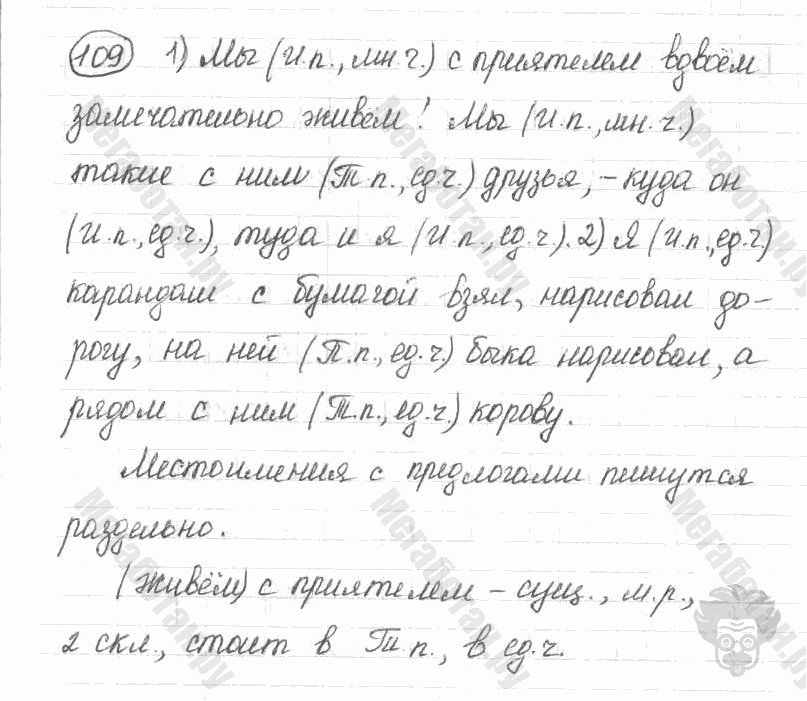 109 1) Мы (И.п., мн.ч.) с приятелем вдвоём
замечательно живём! Мы (И.п., мн.ч.)
такие с ним (Т.п., ед.ч.) друзья, – куда он
(И.п., ед.ч.), туда и я (И.п., ед.ч.). 2) Я (И.п., ед.ч)
карандаш с бумагой взял, нарисовал до-
рогу, на ней (П.п., ед.ч.) быка нарисовал, а
рядом с ним (Т.п., ед.ч.) корову.
Местоимения с предлогами пишутся
раздельно.
(живём) с приятелем – сущ., м.р.,
2 скл., стоит в Тп.п., в ед.ч.
Мегаботан.ру
Мегаботан.ру
Мегаботан.ру
Мегаботан.ру
Мегаботан.ру
Мегаботан.ру